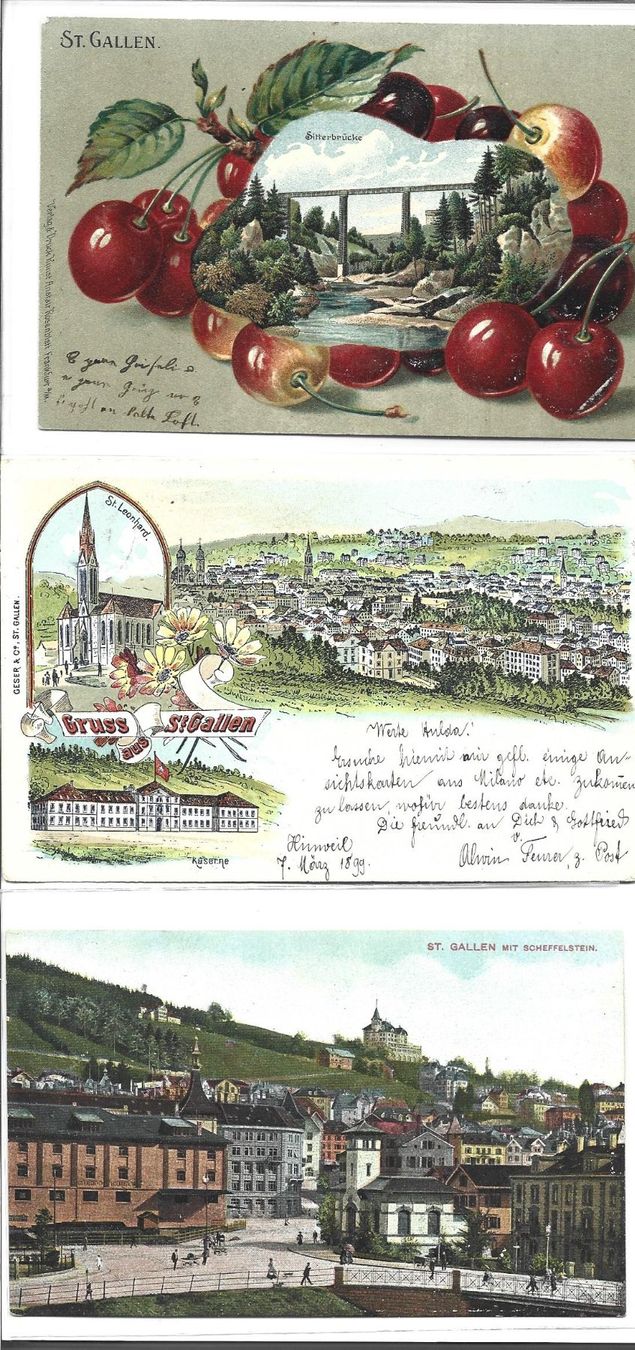 ST. GALLEN.
Sitterbrücke
Verlag & Druck Kunst Anstalt Rosenblatt Frankfurt a/M.
St. Leonhard.
GESER & Co, ST. GALLEN.
Gruss
aus
St Gallen
Kaserne
Werte Hulda!
Ersuche hiemit mir gefl. einige An-
sichtskarten aus Milano etc. zukommen
zu lassen, wofür bestens danke.
Die freundl. an Dich & Gottfried
v.
Hinweil
7. März 1899.
Alwin Feurer, z. Post
ST. GALLEN MIT SCHEFFELSTEIN.